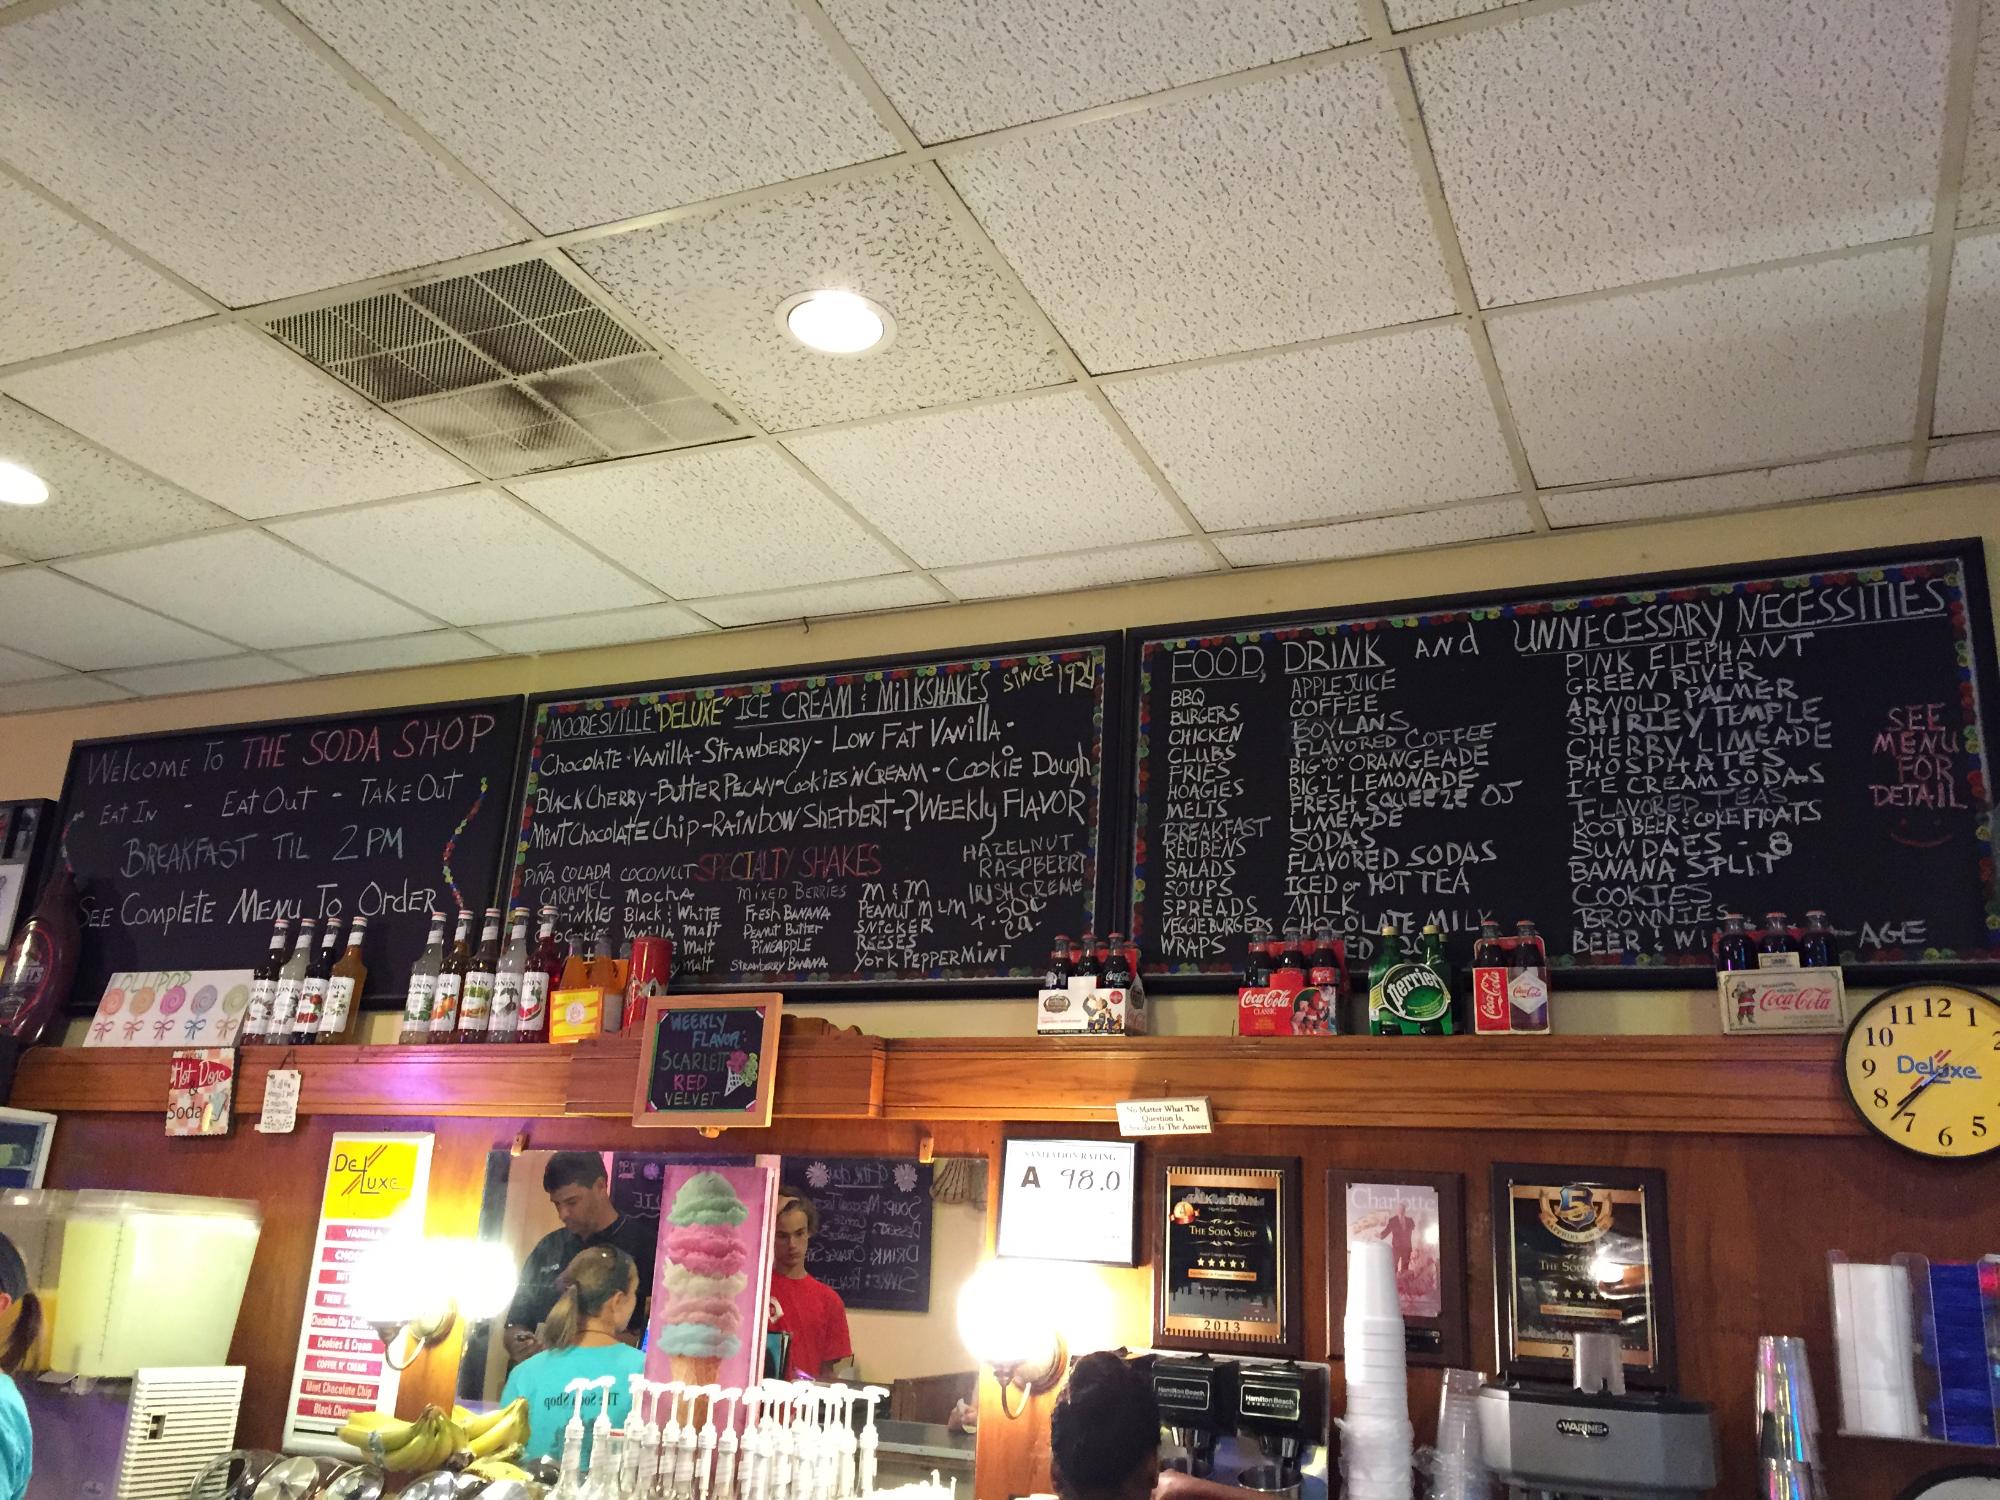 WELCOME TO THE SODA SHOP
EAT IN - EAT OUT - TAKE OUT
BREAKFAST TIL 2 PM
SEE COMPLETE MENU TO ORDER
MOORESVILLE "DELUXE" ICE CREAM & MILKSHAKES SINCE 1924
CHOCOLATE - VANILLA - STRAWBERRY - LOW FAT VANILLA -
BLACK CHERRY - BUTTER PECAN - COOKIES 'N CREAM - COOKIE DOUGH
MINT CHOCOLATE CHIP - RAINBOW SHERBERT - ? WEEKLY FLAVOR
SPECIALTY SHAKES
PIÑA COLADA COCONUT
CARAMEL
MOCHA
BLACK & WHITE
VANILLA MALT
MALT
MALT
MIXED BERRIES
FRESH BANANA
PEANUT BUTTER
PINEAPPLE
STRAWBERRY BANANA
M & M
PEANUT M & M
SNICKER
REESES
YORK PEPPERMINT
HAZELNUT
RASPBERRY
IRISH CREME
+ .50¢
ea.
FOOD, DRINK AND UNNECESSARY NECESSITIES
BBQ
BURGERS
CHICKEN
CLUBS
FRIES
HOAGIES
MELTS
BREAKFAST
REUBENS
SALADS
SOUPS
SPREADS
VEGGIE BURGERS
WRAPS
APPLE JUICE
COFFEE
BOYLANS
FLAVORED COFFEE
BIG "O" ORANGEADE
BIG "L" LEMONADE
FRESH SQUEEZE OJ
LIMEADE
SODAS
FLAVORED SODAS
ICED or HOT TEA
MILK
CHOCOLATE MILK
PINK ELEPHANT
GREEN RIVER
ARNOLD PALMER
SHIRLEY TEMPLE
CHERRY LIMEADE
PHOSPHATES
ICE CREAM SODAS
FLAVORED TEAS
ROOT BEER & COKE FLOATS
SUNDAES - 8
BANANA SPLIT
COOKIES
BROWNIES
BEER &
SEE
MENU
FOR
DETAIL
LOLLIPOP
Coca-Cola
CLASSIC
perrier
Coca-Cola
Coca-Cola
WEEKLY
FLAVOR:
SCARLETT
RED
VELVET
Hot Dogs
Soda
No Matter What The
Question Is,
Chocolate Is The Answer
DELUXE
Chocolate Chip
Cookies & Cream
COFFEE N' CREAMS
Mint Chocolate Chip
Black Cherry
SANITATION RATING
A 98.0
TALK of the TOWN
THE SODA SHOP
2013
Charlotte
5
THE SODA
The Soda Shop
Hamilton Beach
Hamilton Beach
WARING
11 12 1
10 2
9 Deluxe
8
7 6 5